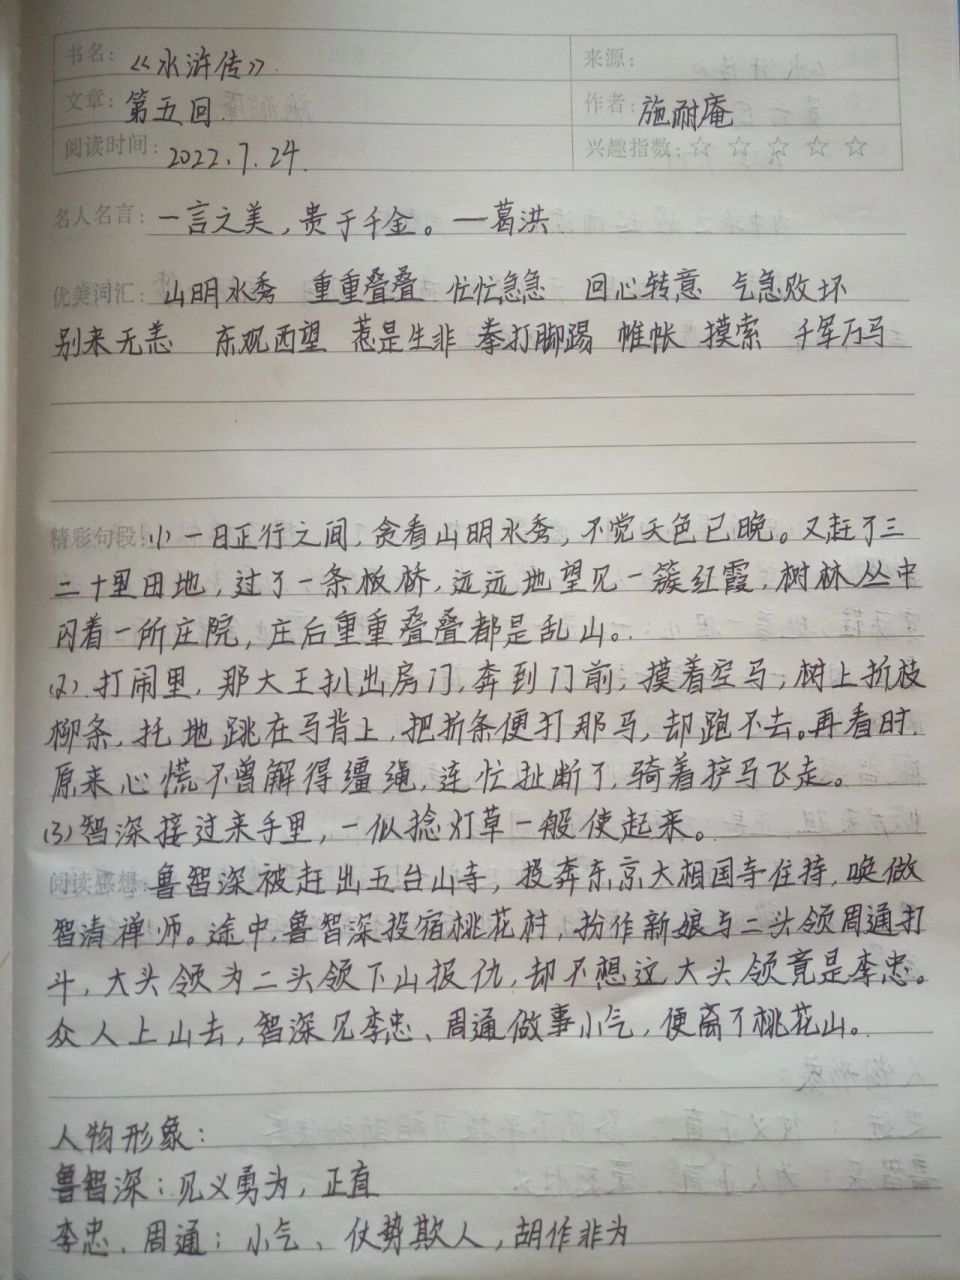 书名: 《水浒传》 来源:
文章: 第五回 作者: 施耐庵
阅读时间: 2022.7.24 兴趣指数: ☆ ☆ ☆ ☆ ☆
名人名言: 一言之美，贵于千金。—葛洪
优美词汇: 山明水秀 重重叠叠 忙忙急急 回心转意 气急败坏
别来无恙 东观西望 惹是生非 拳打脚踢 帷帐 摸索 千军万马
精彩句段: (1) 一日正行之间，贪看山明水秀，不觉天色已晚。又赶了三
二十里田地，过了一条板桥，远远地望见一簇红霞，树林丛中
闪着一所庄院，庄后重重叠叠都是乱山。
(2) 打闹里，那大王扒出房门，奔到门前，摸着空马，树上折枝
柳条，托地跳在马背上，把折条便打那马，却跑不去。再看时，
原来心慌不曾解得缰绳，连忙扯断了，骑着马飞走。
(3) 智深接过来手里，一似捻灯草一般使起来。
阅读感想: 鲁智深被赶出五台山寺，投奔东京大相国寺住持，唤做
智清禅师。途中，鲁智深投宿桃花村，扮作新娘与二头领周通打
斗，大头领为二头领下山报仇，却不想这大头领竟是李忠。
众人上山去，智深见李忠、周通做事小气，便离了桃花山。
人物形象：
鲁智深：见义勇为，正直
李忠、周通：小气、仗势欺人，胡作非为